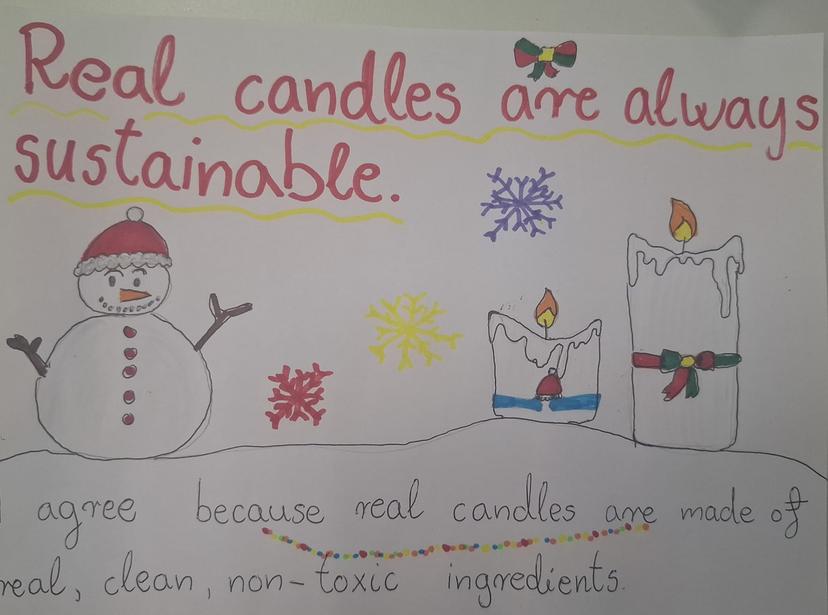 Real candles are always
sustainable.
I agree because real candles are made of
real, clean, non-toxic ingredients.